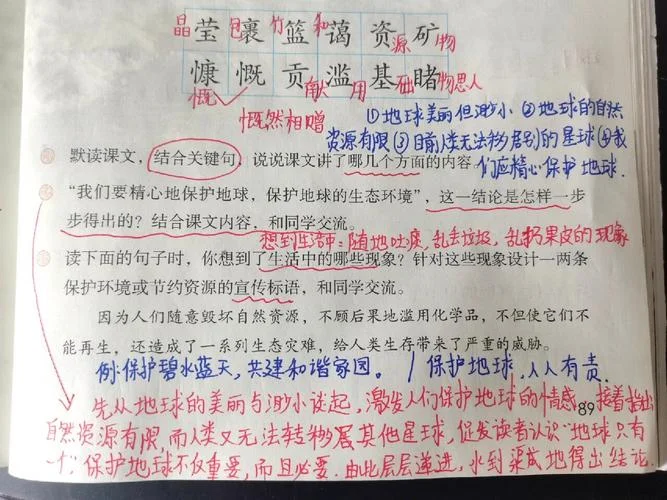 晶莹 裹 竹篮 和蔼 资源 矿物
慷慨 贡献 滥用 基础 睹物思人
慨 慨然相赠
①地球美丽但渺小②地球的自然
资源有限③目前人类无法移居别的星球④我
们应精心保护地球.
默读课文,结合关键句,说说课文讲了哪几个方面的内容。
“我们要精心地保护地球,保护地球的生态环境”,这一结论是怎样一步
步得出的?结合课文内容,和同学交流。
想到生活中:随地吐痰,乱丢垃圾,乱扔果皮的现象
读下面的句子时,你想到了生活中的哪些现象?针对这些现象设计一两条
保护环境或节约资源的宣传标语,和同学交流。
因为人们随意毁坏自然资源,不顾后果地滥用化学品,不但使它们不
能再生,还造成了一系列生态灾难,给人类生存带来了严重的威胁。
例:保护碧水蓝天,共建和谐家园。/保护地球,人人有责.
先从地球的美丽与渺小谈起,激发人们保护地球的情感 接着指出
89
自然资源有限,而人类又无法转移居其他星球,促发读者认识“地球只有
一个”,保护地球不仅重要,而且必要.由此层层递进,水到渠成地得出结论